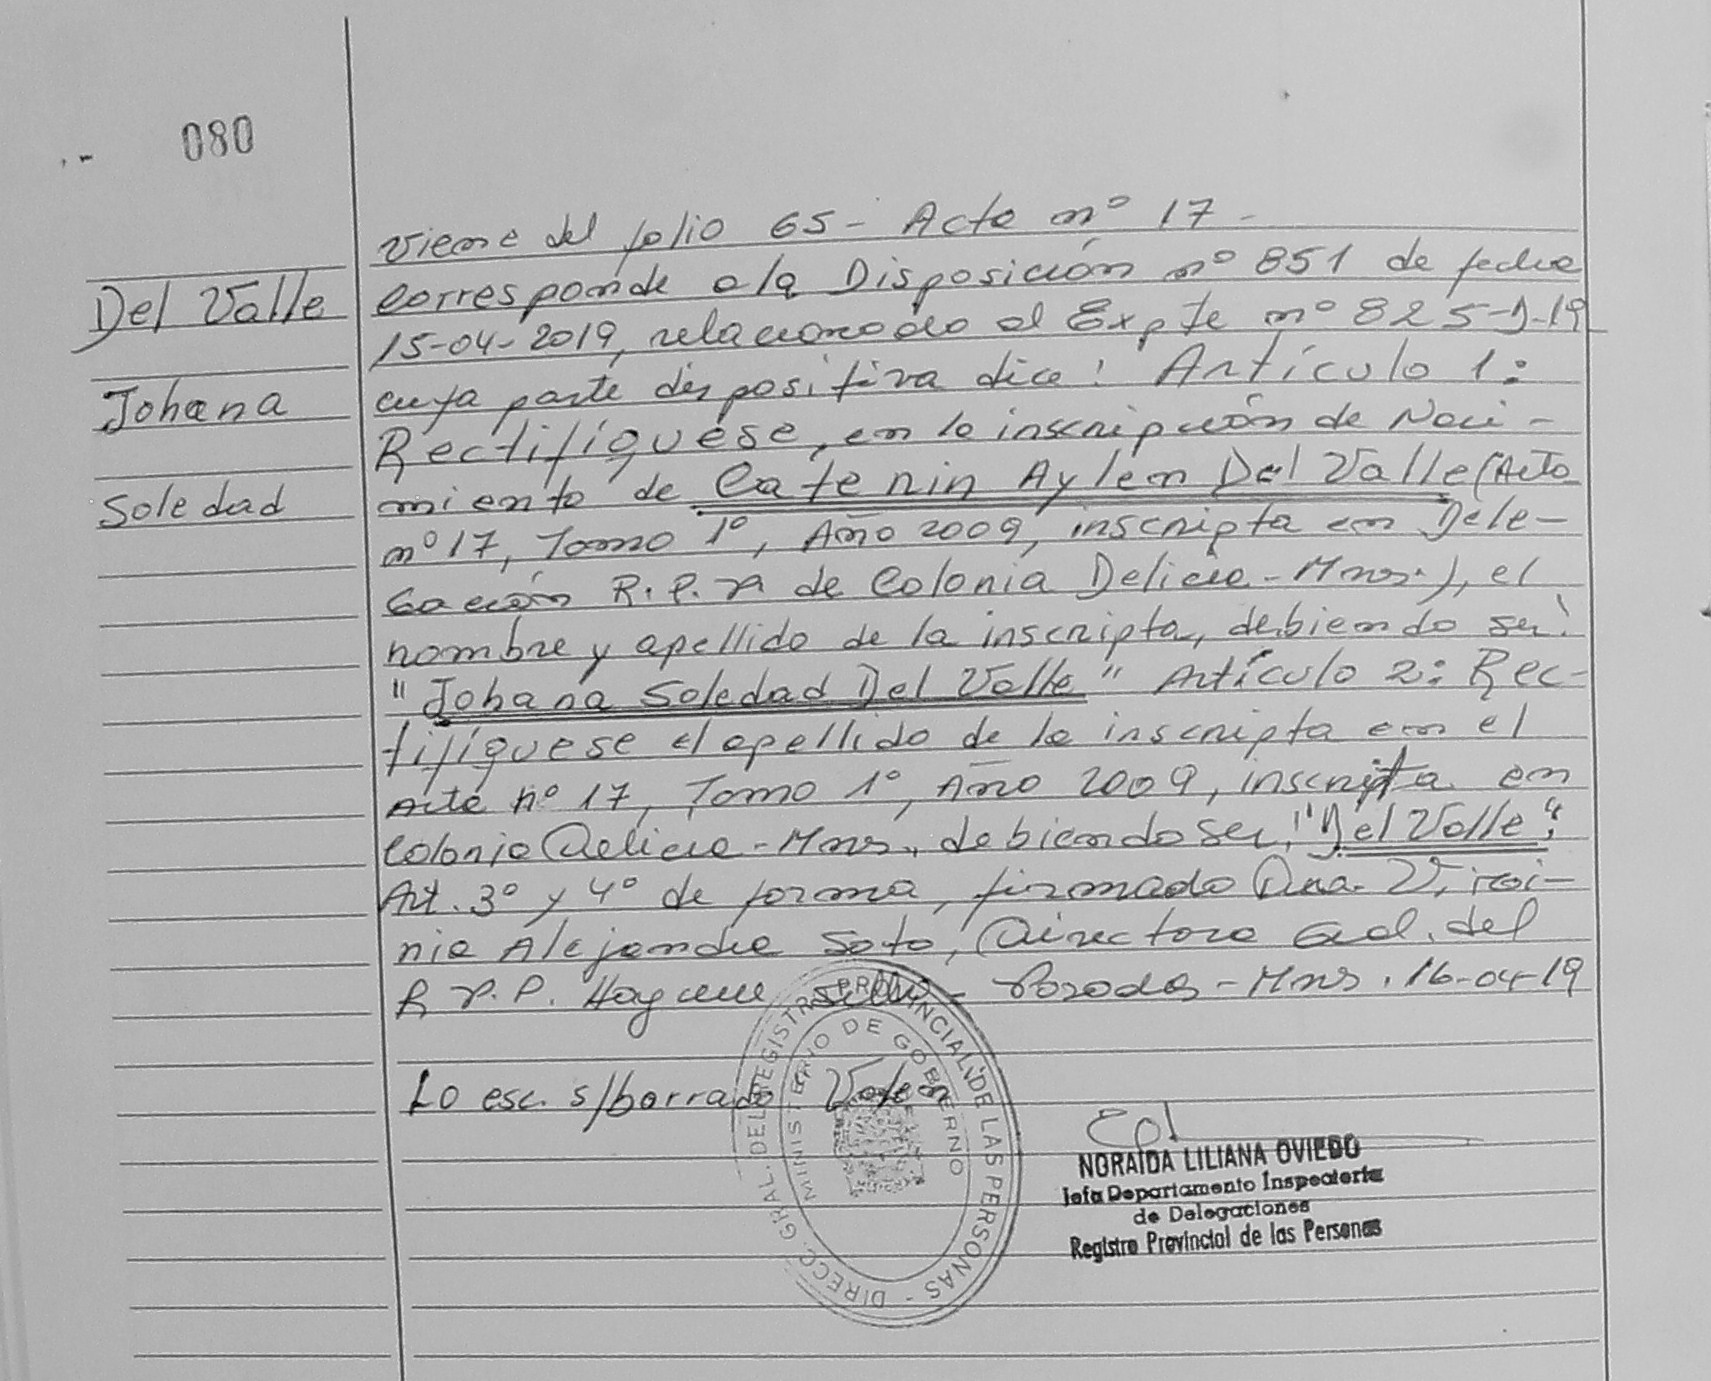 080
Del Valle
Johana
Soledad
viene del folio 65 - Acta nº 17 -
Corresponde a la Disposición nº 851 de fecha
15-04-2019, relacionado al Expte nº 825-D-19
cuya parte dispositiva dice: Artículo 1:
Rectifíquese, en la inscripción de Naci-
miento de Catenin Aylen Del Valle (Acta
nº 17, Tomo 1º, Año 2009, inscripta en Dele-
gación R.P. de Colonia Delicia - Mnes.), el
nombre y apellido de la inscripta, debiendo ser:
"Johana Soledad Del Valle" Artículo 2: Rec-
tifíquese el apellido de la inscripta en el
Acta nº 17, Tomo 1º, Año 2009, inscripta en
Colonia Delicia - Mnes., debiendo ser: "Del Valle".
Art. 3º y 4º de forma, firmado Dra. Virgi-
nia Alejandra Soto, Directora Gral. del
R.P.P. - Posadas - Mnes. 16-04-19
Lo esc. s/borrado Vale
DIRECC. GRAL. DEL REGISTRO PROVINCIAL DE LAS PERSONAS -
MINISTERIO DE GOBIERNO
NORAIDA LILIANA OVIEDO
Jefa Departamento Inspectoria
de Delegaciones
Registro Provincial de las Personas